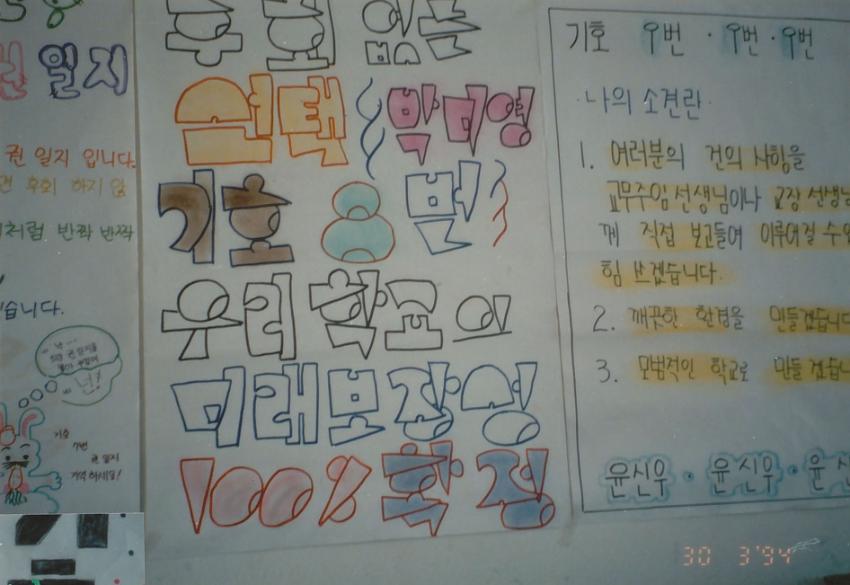 권 일지
권 일지 입니다.
후회 하지 않
처럼 반짝 반짝
습니다.
넌!
기호
7번
권 일지
기억 하세요!
후회 없는
선택 박미영
기호 8번
우리 학교의
미래 보장 형
100% 확정
기호 9번 · 9번 · 9번
· 나의 소견란 ·
1. 여러분의 건의 사항을
교무주임 선생님이나 교장 선생님
께 직접 보고들여 이루어질 수있
힘 쓰겠습니다.
2. 깨끗한 환경을 만들겠습니다
3. 모범적인 학교로 만들 겠습니
윤신우 · 윤신우 · 윤신
30 3'94